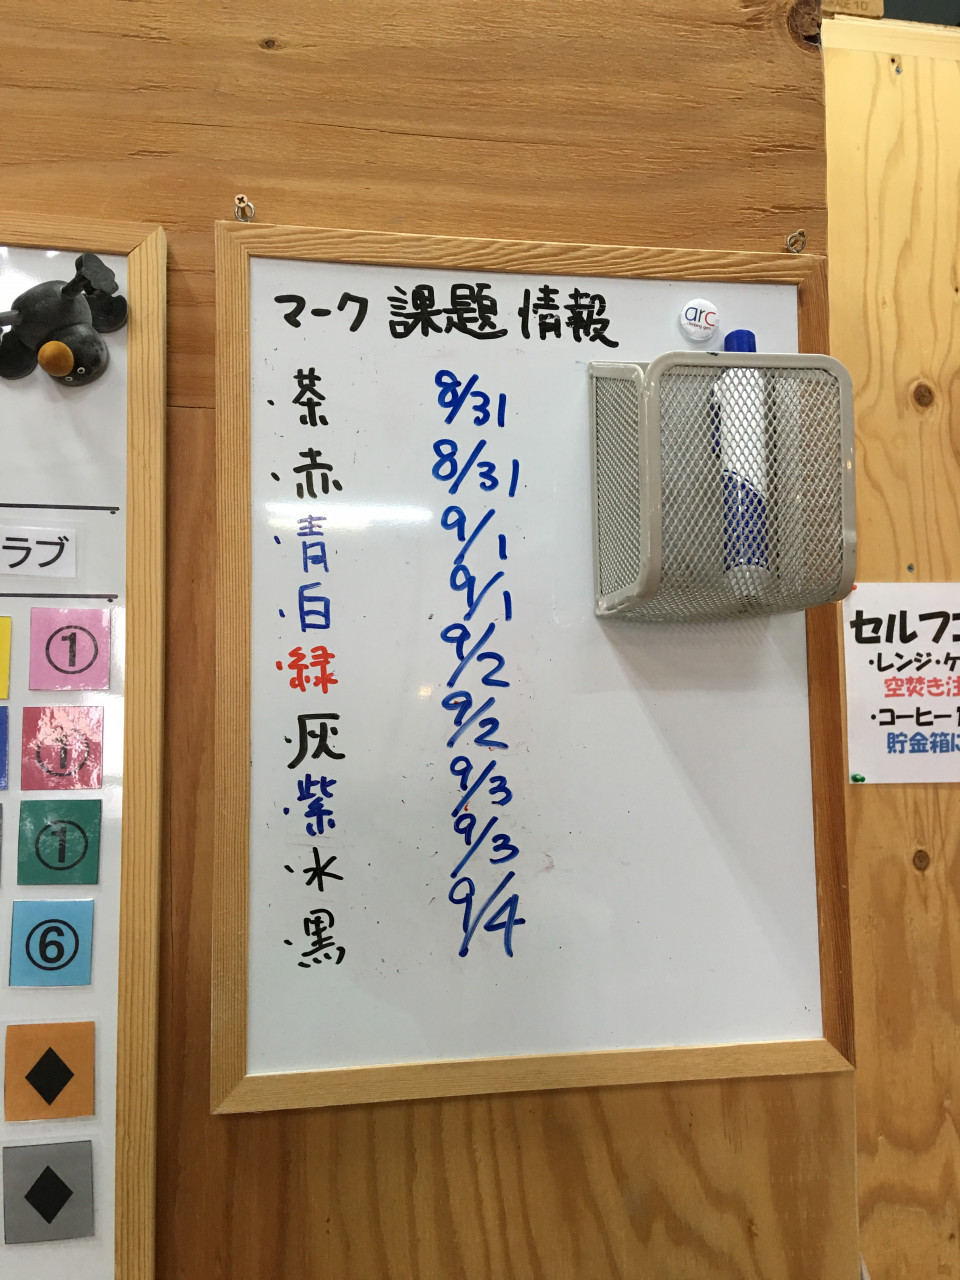 マーク 課題 情報
arc
・茶 8/31
・赤 8/31
・青 9/1
・白 9/1
・緑 9/2
・灰 9/2
・紫 9/3
・水 9/3
・黒 9/4
ラブ
①
①
①
⑥
セルフコ
・レンジ・ケ
空焚き注
・コーヒー1
貯金箱に